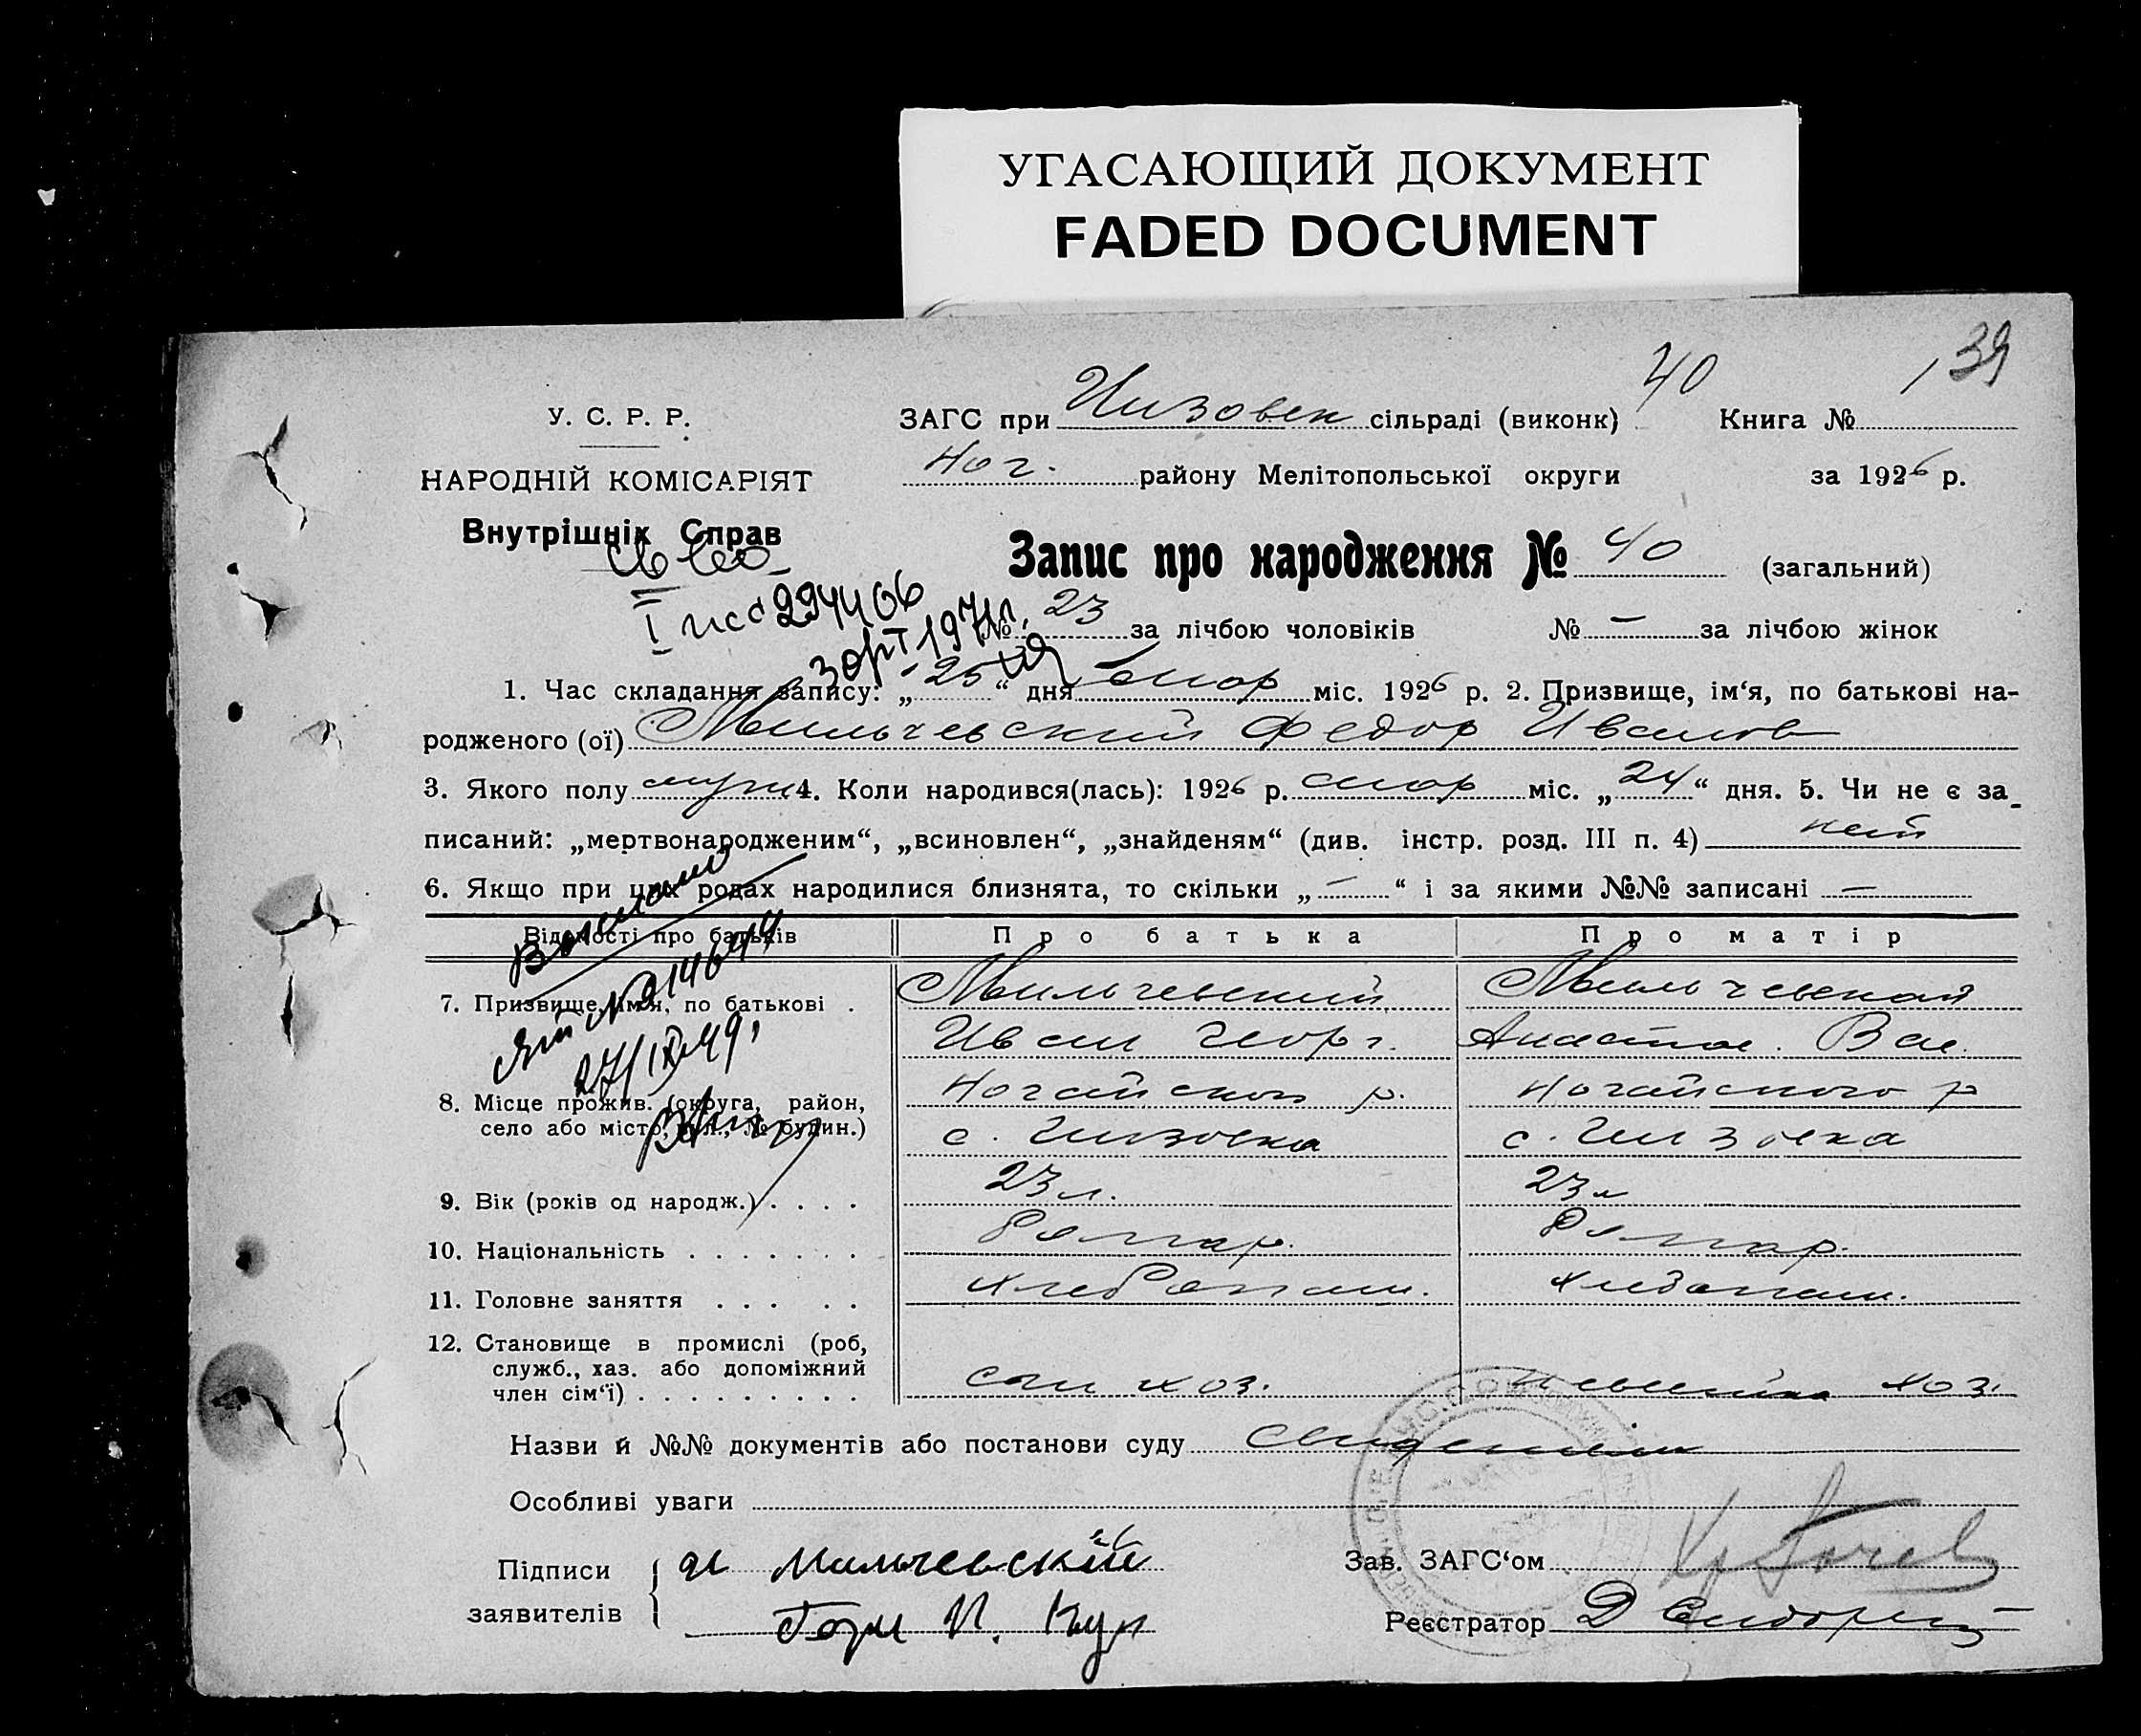 УГАСАЮЩИЙ ДОКУМЕНТ
FADED DOCUMENT
39
40
У. С. Р. Р.
ЗАГС при сільраді (виконк) Книга №
НАРОДНІЙ КОМІСАРІЯТ
Ног. району Мелітопольської округи за 1926 р.
Внутрішніх Справ
Запис про народження № 40 (загальний)
№ 23 за лічбою чоловіків № — за лічбою жінок
1. Час складання запису: „25“ дня міс. 1926 р. 2. Призвище, ім‘я, по батькові на-
родженого (ої) Мильчевский Федор Иванов
3. Якого полу муж 4. Коли народився(лась): 1926 р. міс. „24“ дня. 5. Чи не є за-
писаний: „мертвонародженим“, „всиновлен“, „знайденям“ (див. інстр. розд. III п. 4)
6. Якщо при цих родах народилися близнята, то скільки „—“ і за якими №№ записані —
Відомості про батьків Про батька Про матір
7. Призвище, ім‘я, по батькові . Мильчевский Мильчевская
Иван Георг. Анастас. Вас.
№ 14644
27/IX 49,
8. Місце прожив. (округа, район, Ногайского р. Ногайского р
село або місто, вул., № будин.)
9. Вік (років од народж.) . . . . 23 л. 23 л
10. Національність . . . . . . .
11. Головне заняття . . . . . Хлебопаш. Хлебопаш.
12. Становище в промислі (роб,
служб., хаз. або допоміжний
член сім‘ї) . . . . . . . . . хоз. хоз.
Назви й №№ документів або постанови суду
Особливі уваги
Підписи Мильчевский Зав. ЗАГС‘ом
заявителів Реєстратор